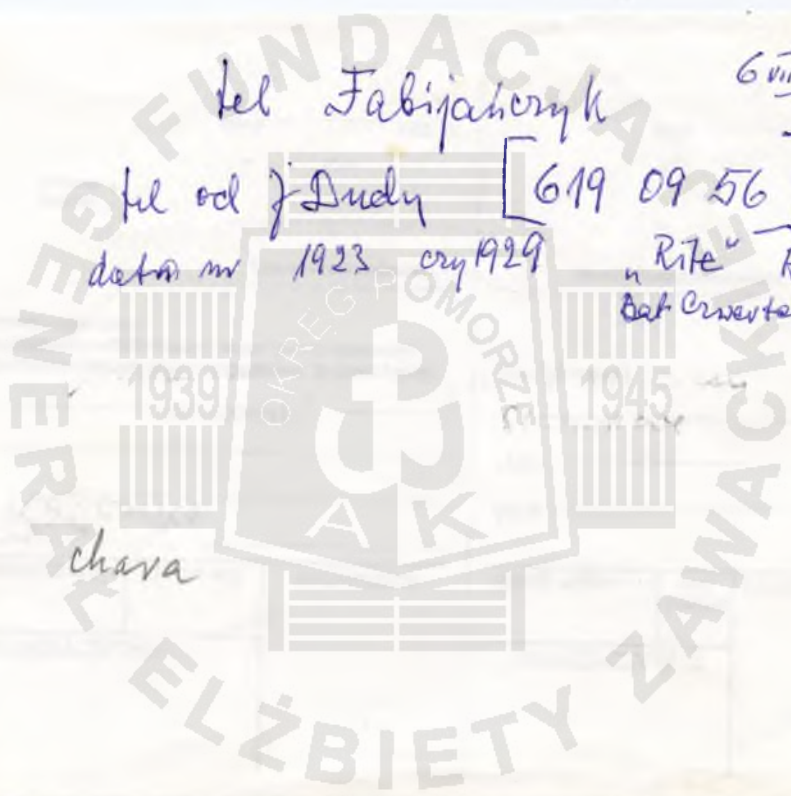 6 VII
tel Fabijańczyk
tel od J. Dudy [619 09 56
data nr 1923 czy 1929 „Rite"
Bat Czwarta
chava
FUNDACJA GENERAŁ ELŻBIETY ZAWACKIEJ
OKRĘG POMORZE
1939 1945
AK